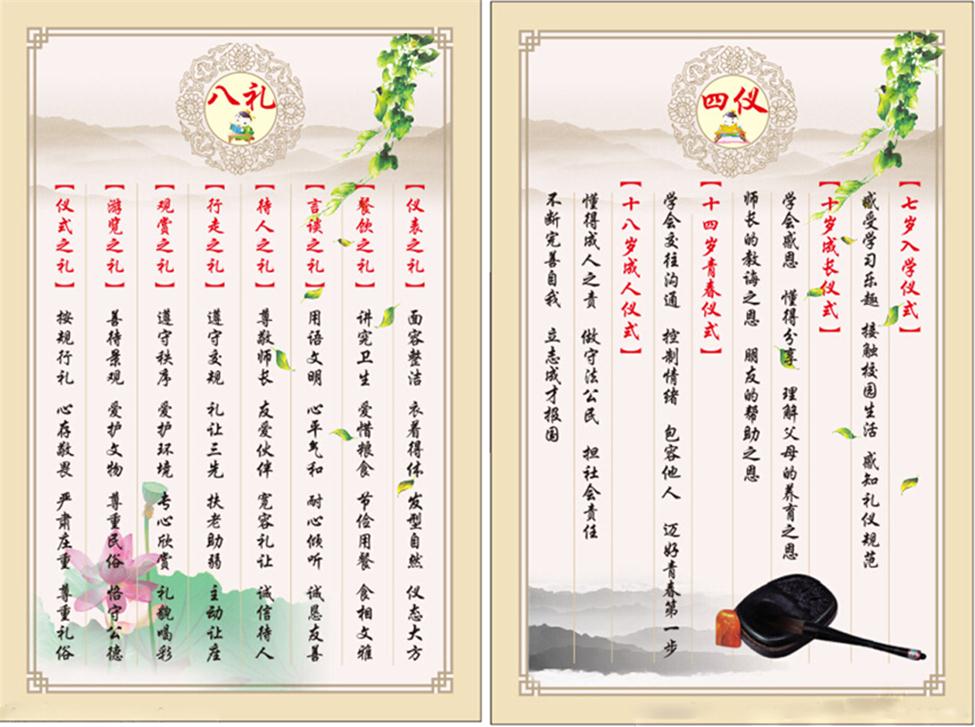 八礼
【仪表之礼】 面容整洁 衣着得体 发型自然 仪态大方
【餐饮之礼】 讲究卫生 爱惜粮食 节俭用餐 食相文雅
【言谈之礼】 用语文明 心平气和 耐心倾听 诚恳友善
【待人之礼】 尊敬师长 友爱伙伴 宽容礼让 诚信待人
【行走之礼】 遵守交规 礼让三先 扶老助弱 主动让座
【观赏之礼】 遵守秩序 爱护环境 专心欣赏 礼貌喝彩
【游览之礼】 善待景观 爱护文物 尊重民俗 恪守公德
【仪式之礼】 按规行礼 心存敬畏 严肃庄重 尊重礼俗
四仪
【七岁入学仪式】
感受学习乐趣 接触校园生活 感知礼仪规范
【十岁成长仪式】
学会感恩 懂得分享 理解父母的养育之恩
师长的教诲之恩 朋友的帮助之恩
【十四岁青春仪式】
学会交往沟通 控制情绪 包容他人 迈好青春第一步
【十八岁成人仪式】
懂得成人之责 做守法公民 担社会责任
不断完善自我 立志成才报国